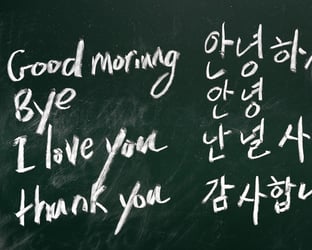 Good morinng 안녕하
Bye 안녕
I love you 난 널 사
thank you 감사합